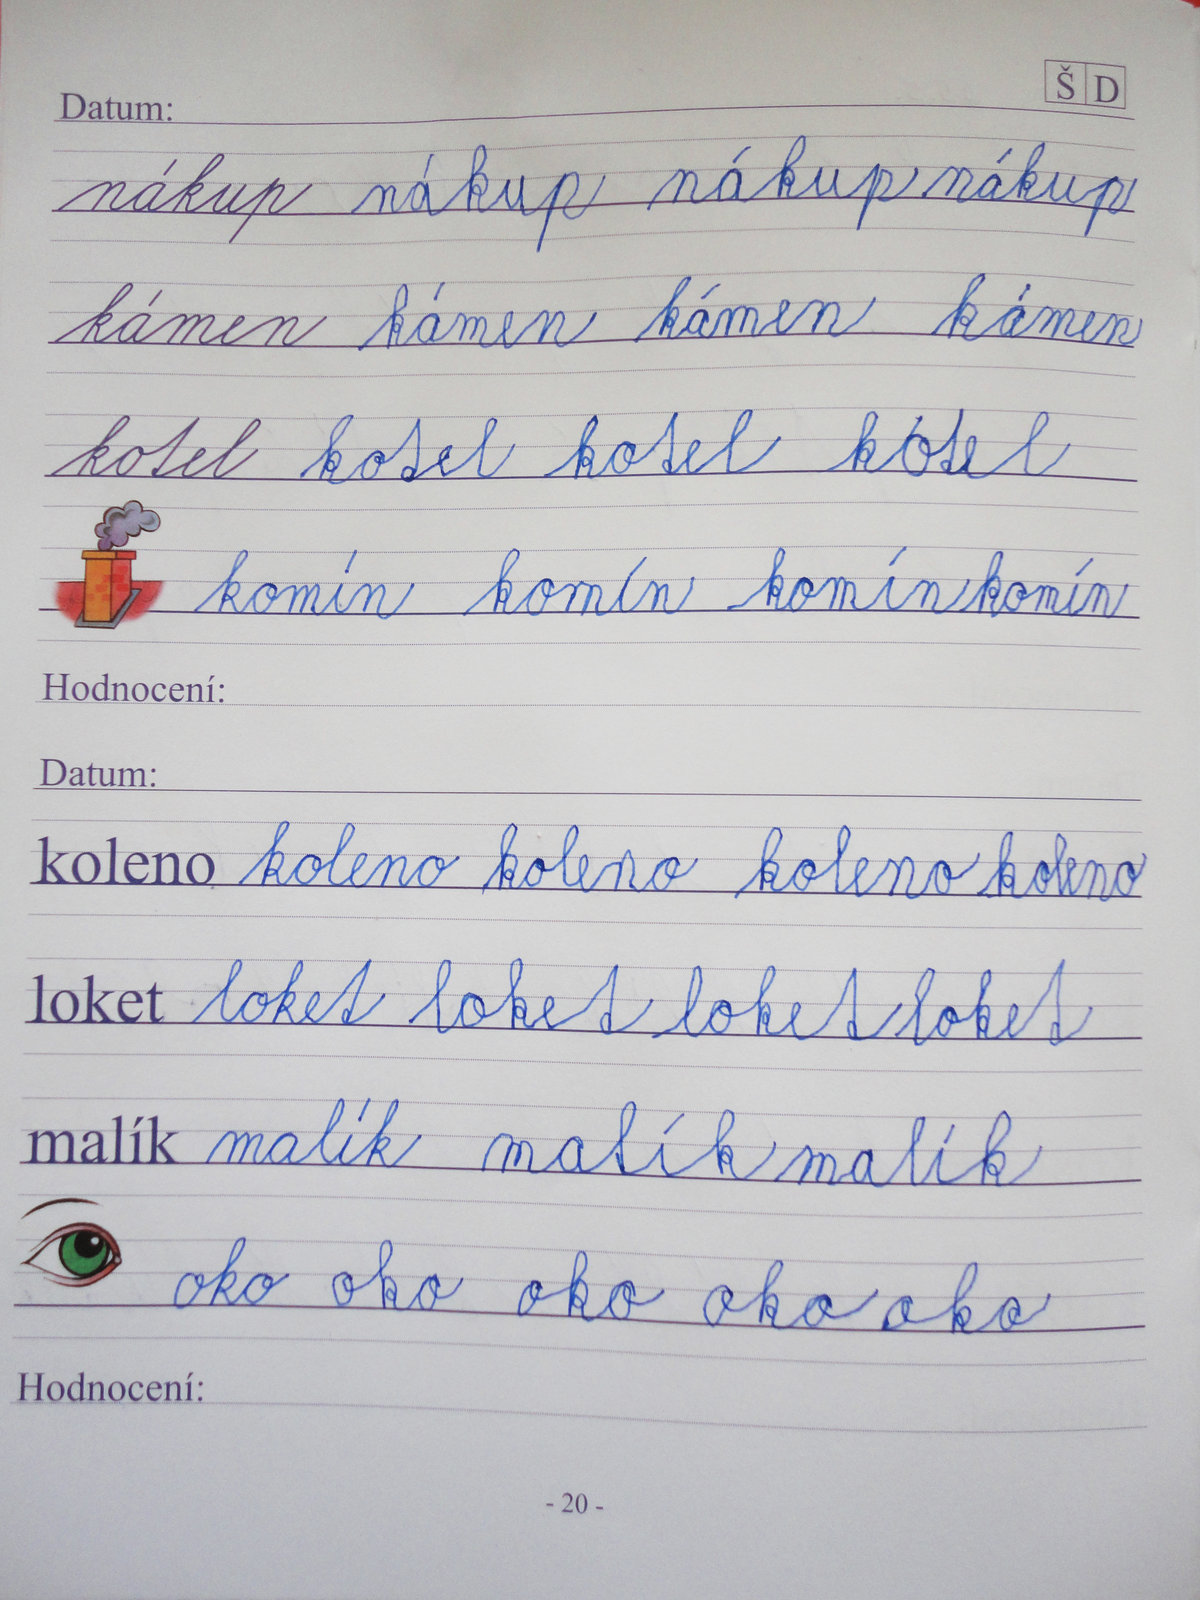 Datum: Š D
nákup nákup nákup nákup
kámen kámen kámen kámen
kotel kotel kotel kotel
komín komín komín komín
Hodnocení:
Datum:
koleno koleno koleno koleno koleno
loket loket loket loket loket
malík malík malík malík
oko oko oko oko oko
Hodnocení:
- 20 -